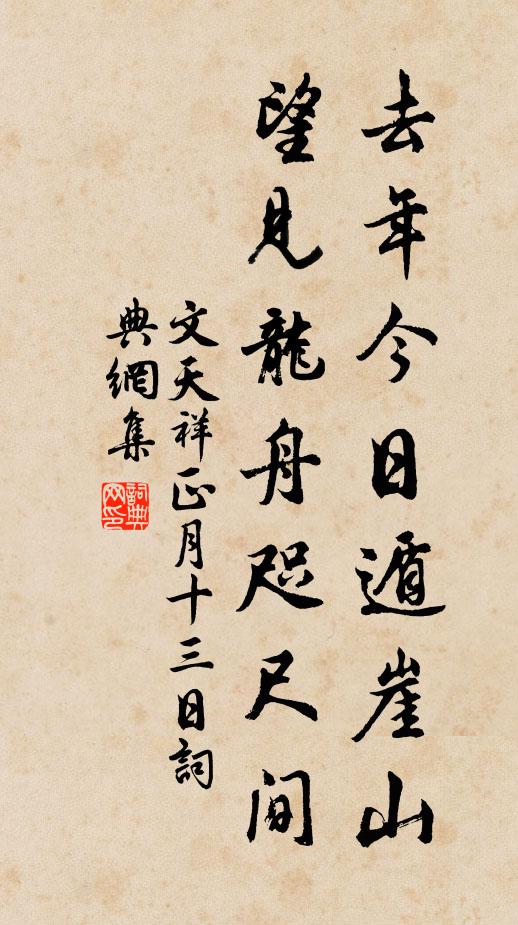 去年今日遁崖山
望見龍舟咫尺間
文天祥正月十三日詞
典網集
詞典
网印